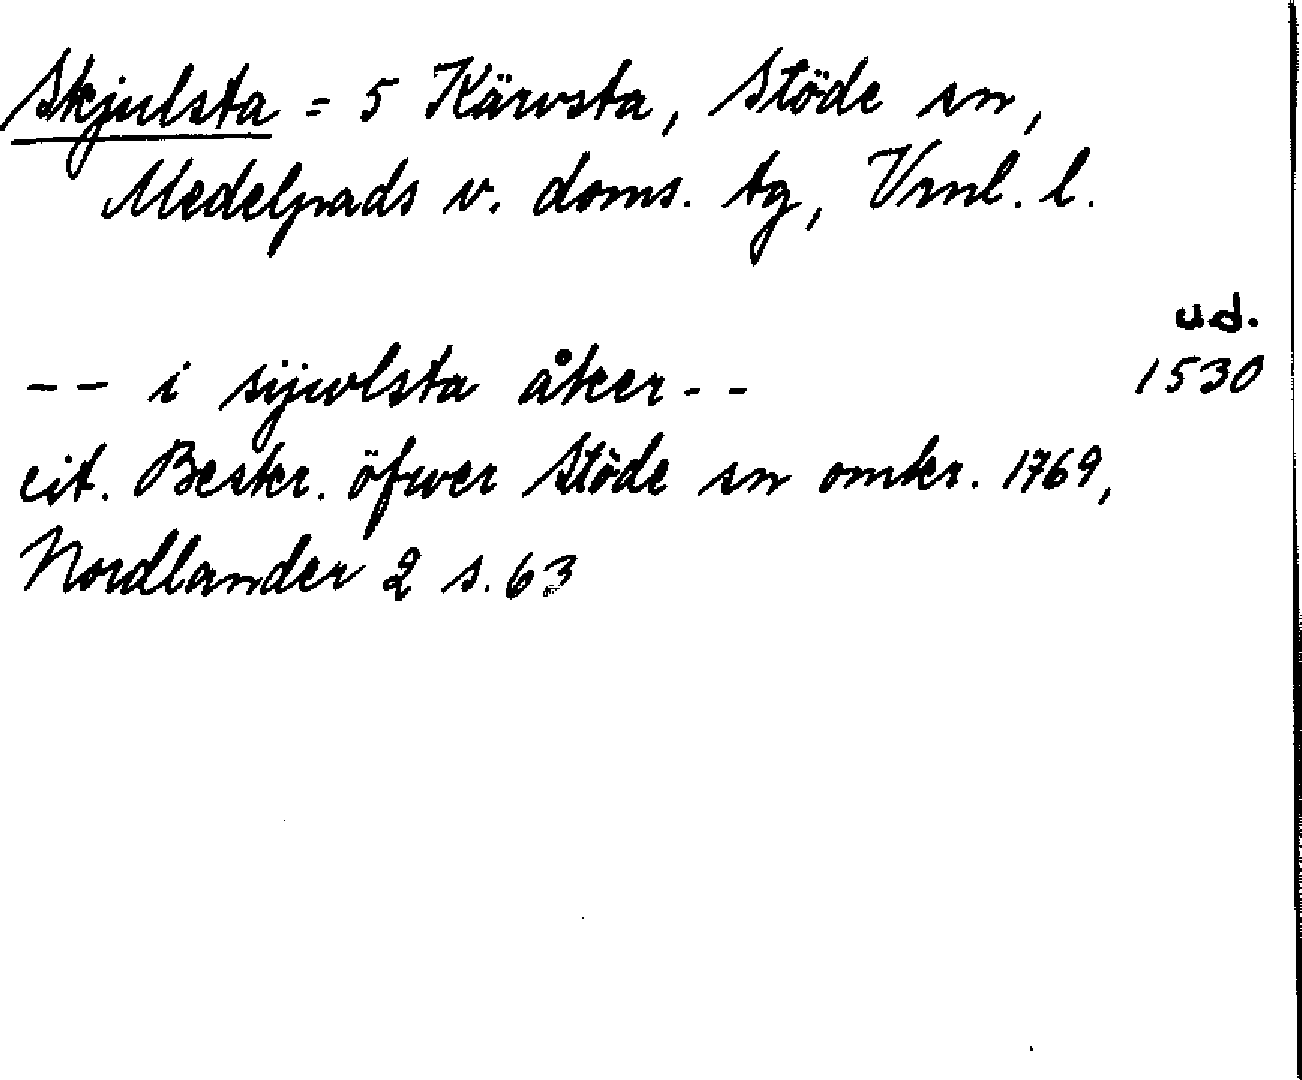 Skjulsta = 5 Kärvsta, Stöde sn,
Medelpads v. doms. tg, Vrnl. l.
ud.
-- i sijwlsta åker -- 1530
cit. Beskr. öfwer Stöde sn omkr. 1769,
Nordlander 2 s. 63